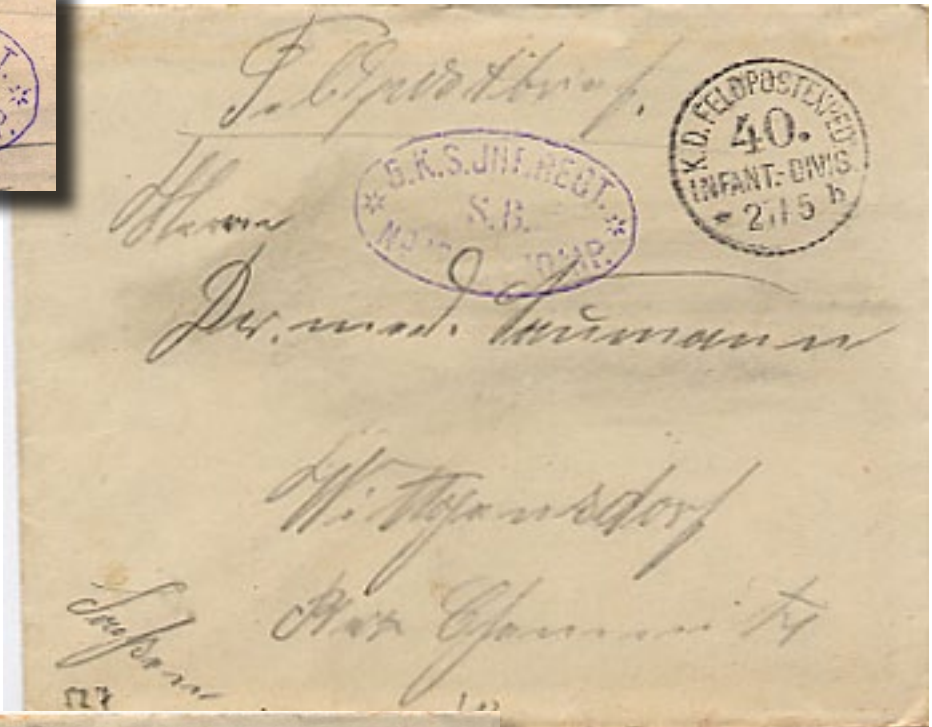 Feldpostbrief.
K.D. FELDPOSTEXPED.
40.
INFANT.-DIVIS.
S.B.
K.S. JNF. REGT.
Herrn
Dr. med. Naumann
Wittgensdorf
Chemnitz
Sachsen
527